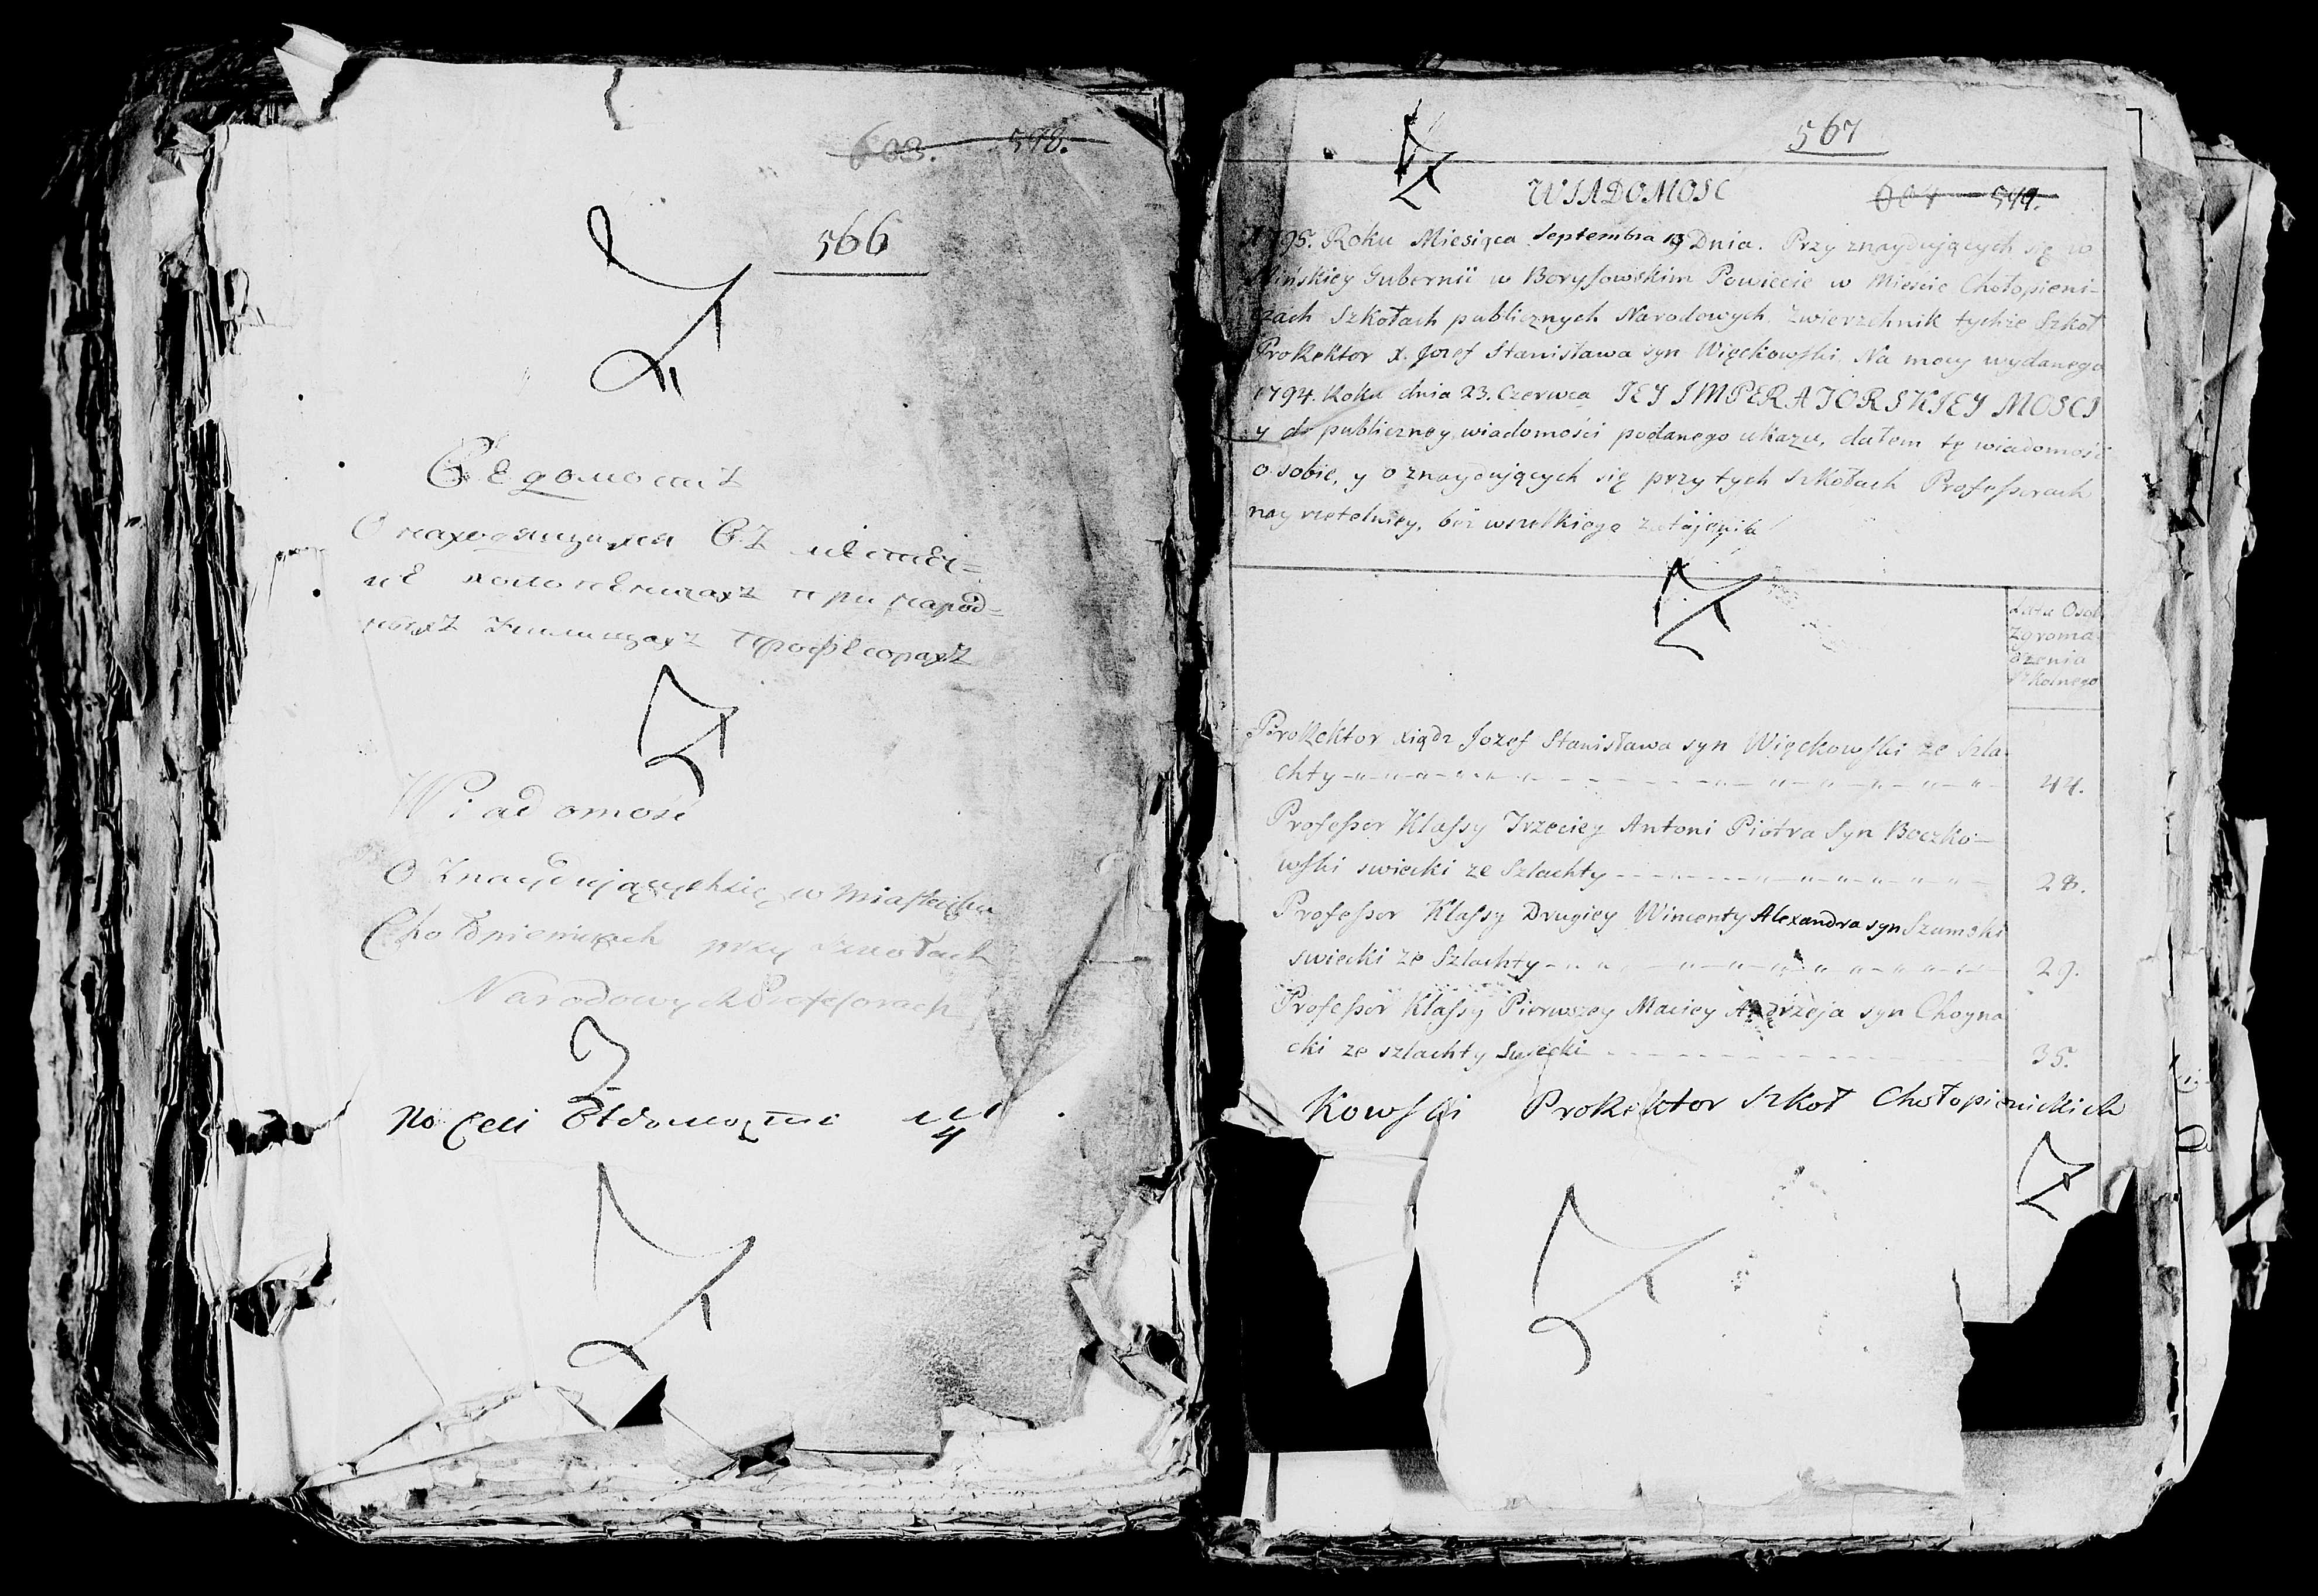 603. 598.
566
Ведомость
О находящихся Въ местеч=
ке холопеничахъ при народ=
ныхъ Училищахъ Профессорахъ
Wiadomość
O Znaydujących się w Miasteczku
Chołopienicach przy Szkołach
Narodowych Professorach
По сей Ведомости
4
567
WIADOMOSC
604 599.
1795. Roku Miesiąca Septembra 13 Dnia. Przy znaydujących się w
Mińskiey Gubernii w Borysowskim Powiecie w Mieście Chołopieni-
czach Szkołach publicznych Narodowych. Zwierzchnik tychże Szkoł
ProRektor X. Jozef Stanisława syn Więckowski Na mocy wydanego
1794. Roku dnia 23. Czerwca IEY IMPERATORSKIEY MOSCI
y do publiczney wiadomości podanego ukazu, dałem tę wiadomość
o sobie, y o znaydujących się przy tych szkołach Professorach
nay rzetelniey, bez wszelkiego zatajenia
Lata Osob
Zgroma-
dzenia
Szkolnego
ProRektor xiądz Jozef Stanisława syn Więckowski ze Szla-
chty 44.
Professor Klassy Trzeciey Antoni Piotra Syn Boczko-
wski swiecki ze Szlachty 28.
Professor Klassy Drugiey Wincenty Alexandra syn Szumski
swiecki ze Szlachty 29.
Professor Klassy Pierwszey Maciey Andrzeja syn Choyna
cki ze szlachty Swiecki 35.
Kowski ProRektor Szkoł Chołopienickich